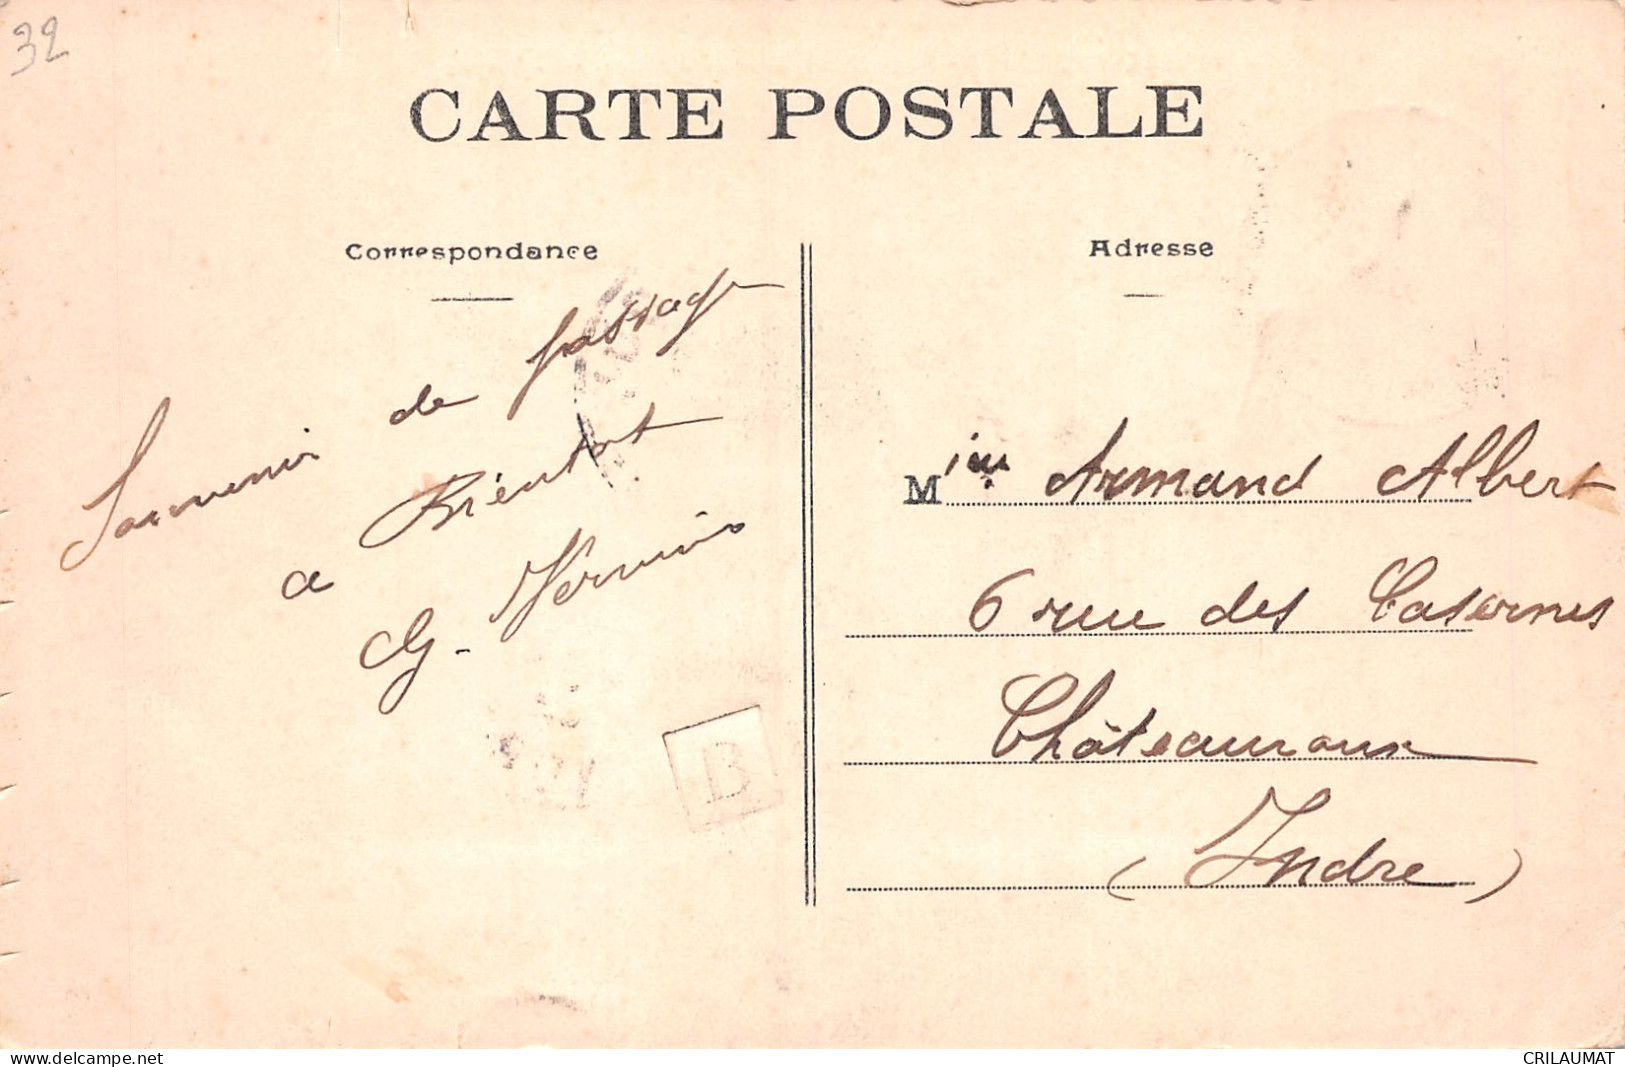 32
CARTE POSTALE
Correspondance
Souvenir de passage
a Bientot
G.
Adresse
M Armand Albert
6 rue des Casernes
Châteauroux
(Indre)
B
www.delcampe.net
CRILAUMAT